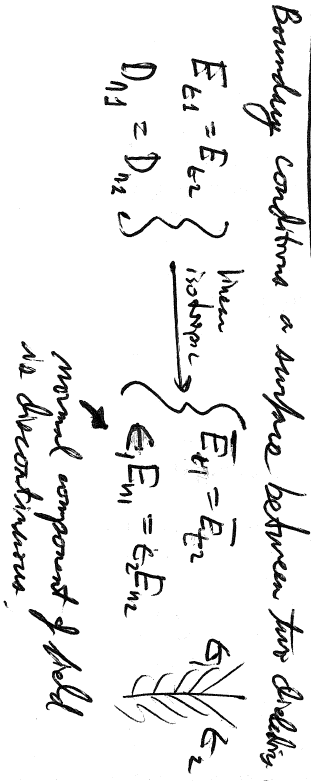 Boundary conditions a surface between two dielectrics
E_t1 = E_t2
D_n1 = D_n2
linear
isotropic
E_t1 = E_t2
ϵ_1 E_n1 = ϵ_2 E_n2
ϵ_1
ϵ_2
normal component of field
is discontinuous.